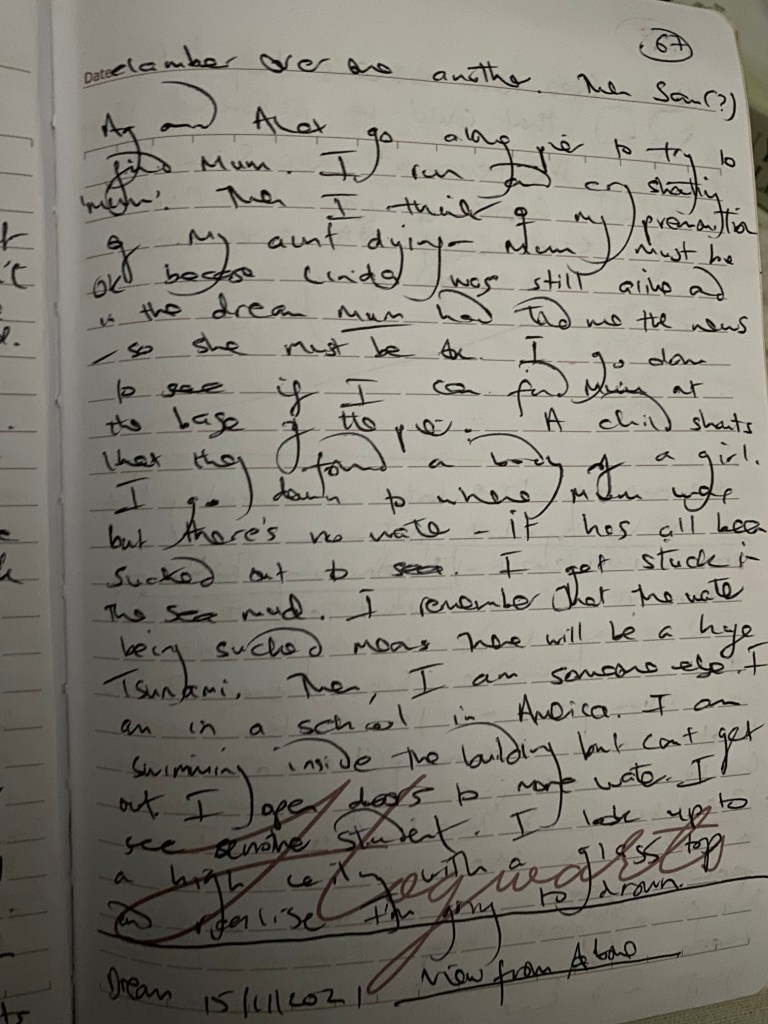 67
Date clamber over one another. Then Sam(?)
and Alex go along pier to try to
find Mum. I run and cry shouting
'mum'. Then I think of my premonition
of my aunt dying - Mum must be
ok because Linda was still alive and
in the dream Mum had told me the news
- so she must be ok. I go down
to see if I can find Mum at
the base of the pier. A child shouts
that they found a body of a girl.
I go down to where Mum was
but there's no water - it has all been
sucked out to sea. I get stuck in
the sea mud. I remember that the water
being sucked means there will be a huge
Tsunami. Then, I am someone else. I
am in a school in America. I am
swimming inside the building but can't get
out. I open doors to more water. I
see another student. I look up to
a high ceiling with a glass top
and realise I'm going to drown.
Dream 15/11/2021 View from Above